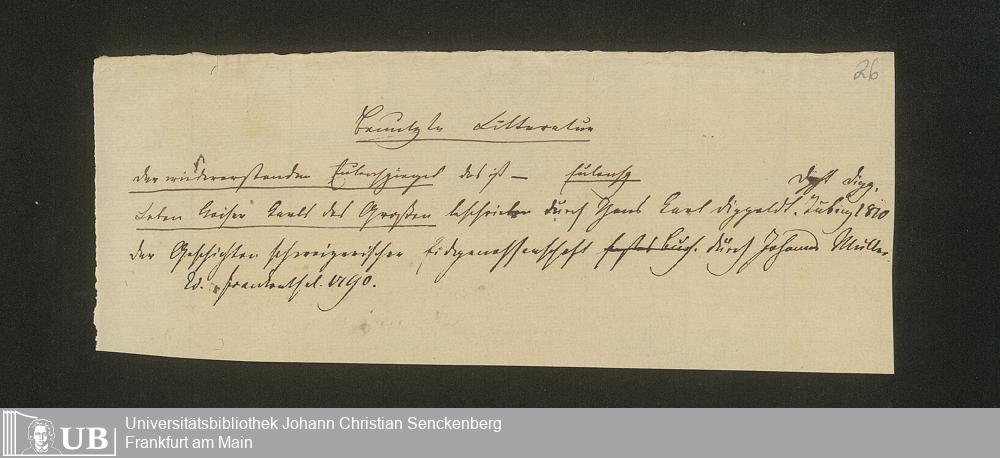 26
Benutzte Litteratur
Der wiedererstandene Eulenspiegel das ist — Eulensp
Dipp.
Leben Kaiser Karls des Großen beschrieben durch Hans Karl Dippoldt. Tübing 1810
der Geschichten schweizerischer Eidgenossenschaft erstes Buch. durch Johannes Müller.
Ed. Frankenthal. 1790.
UB
Universitätsbibliothek Johann Christian Senckenberg
Frankfurt am Main